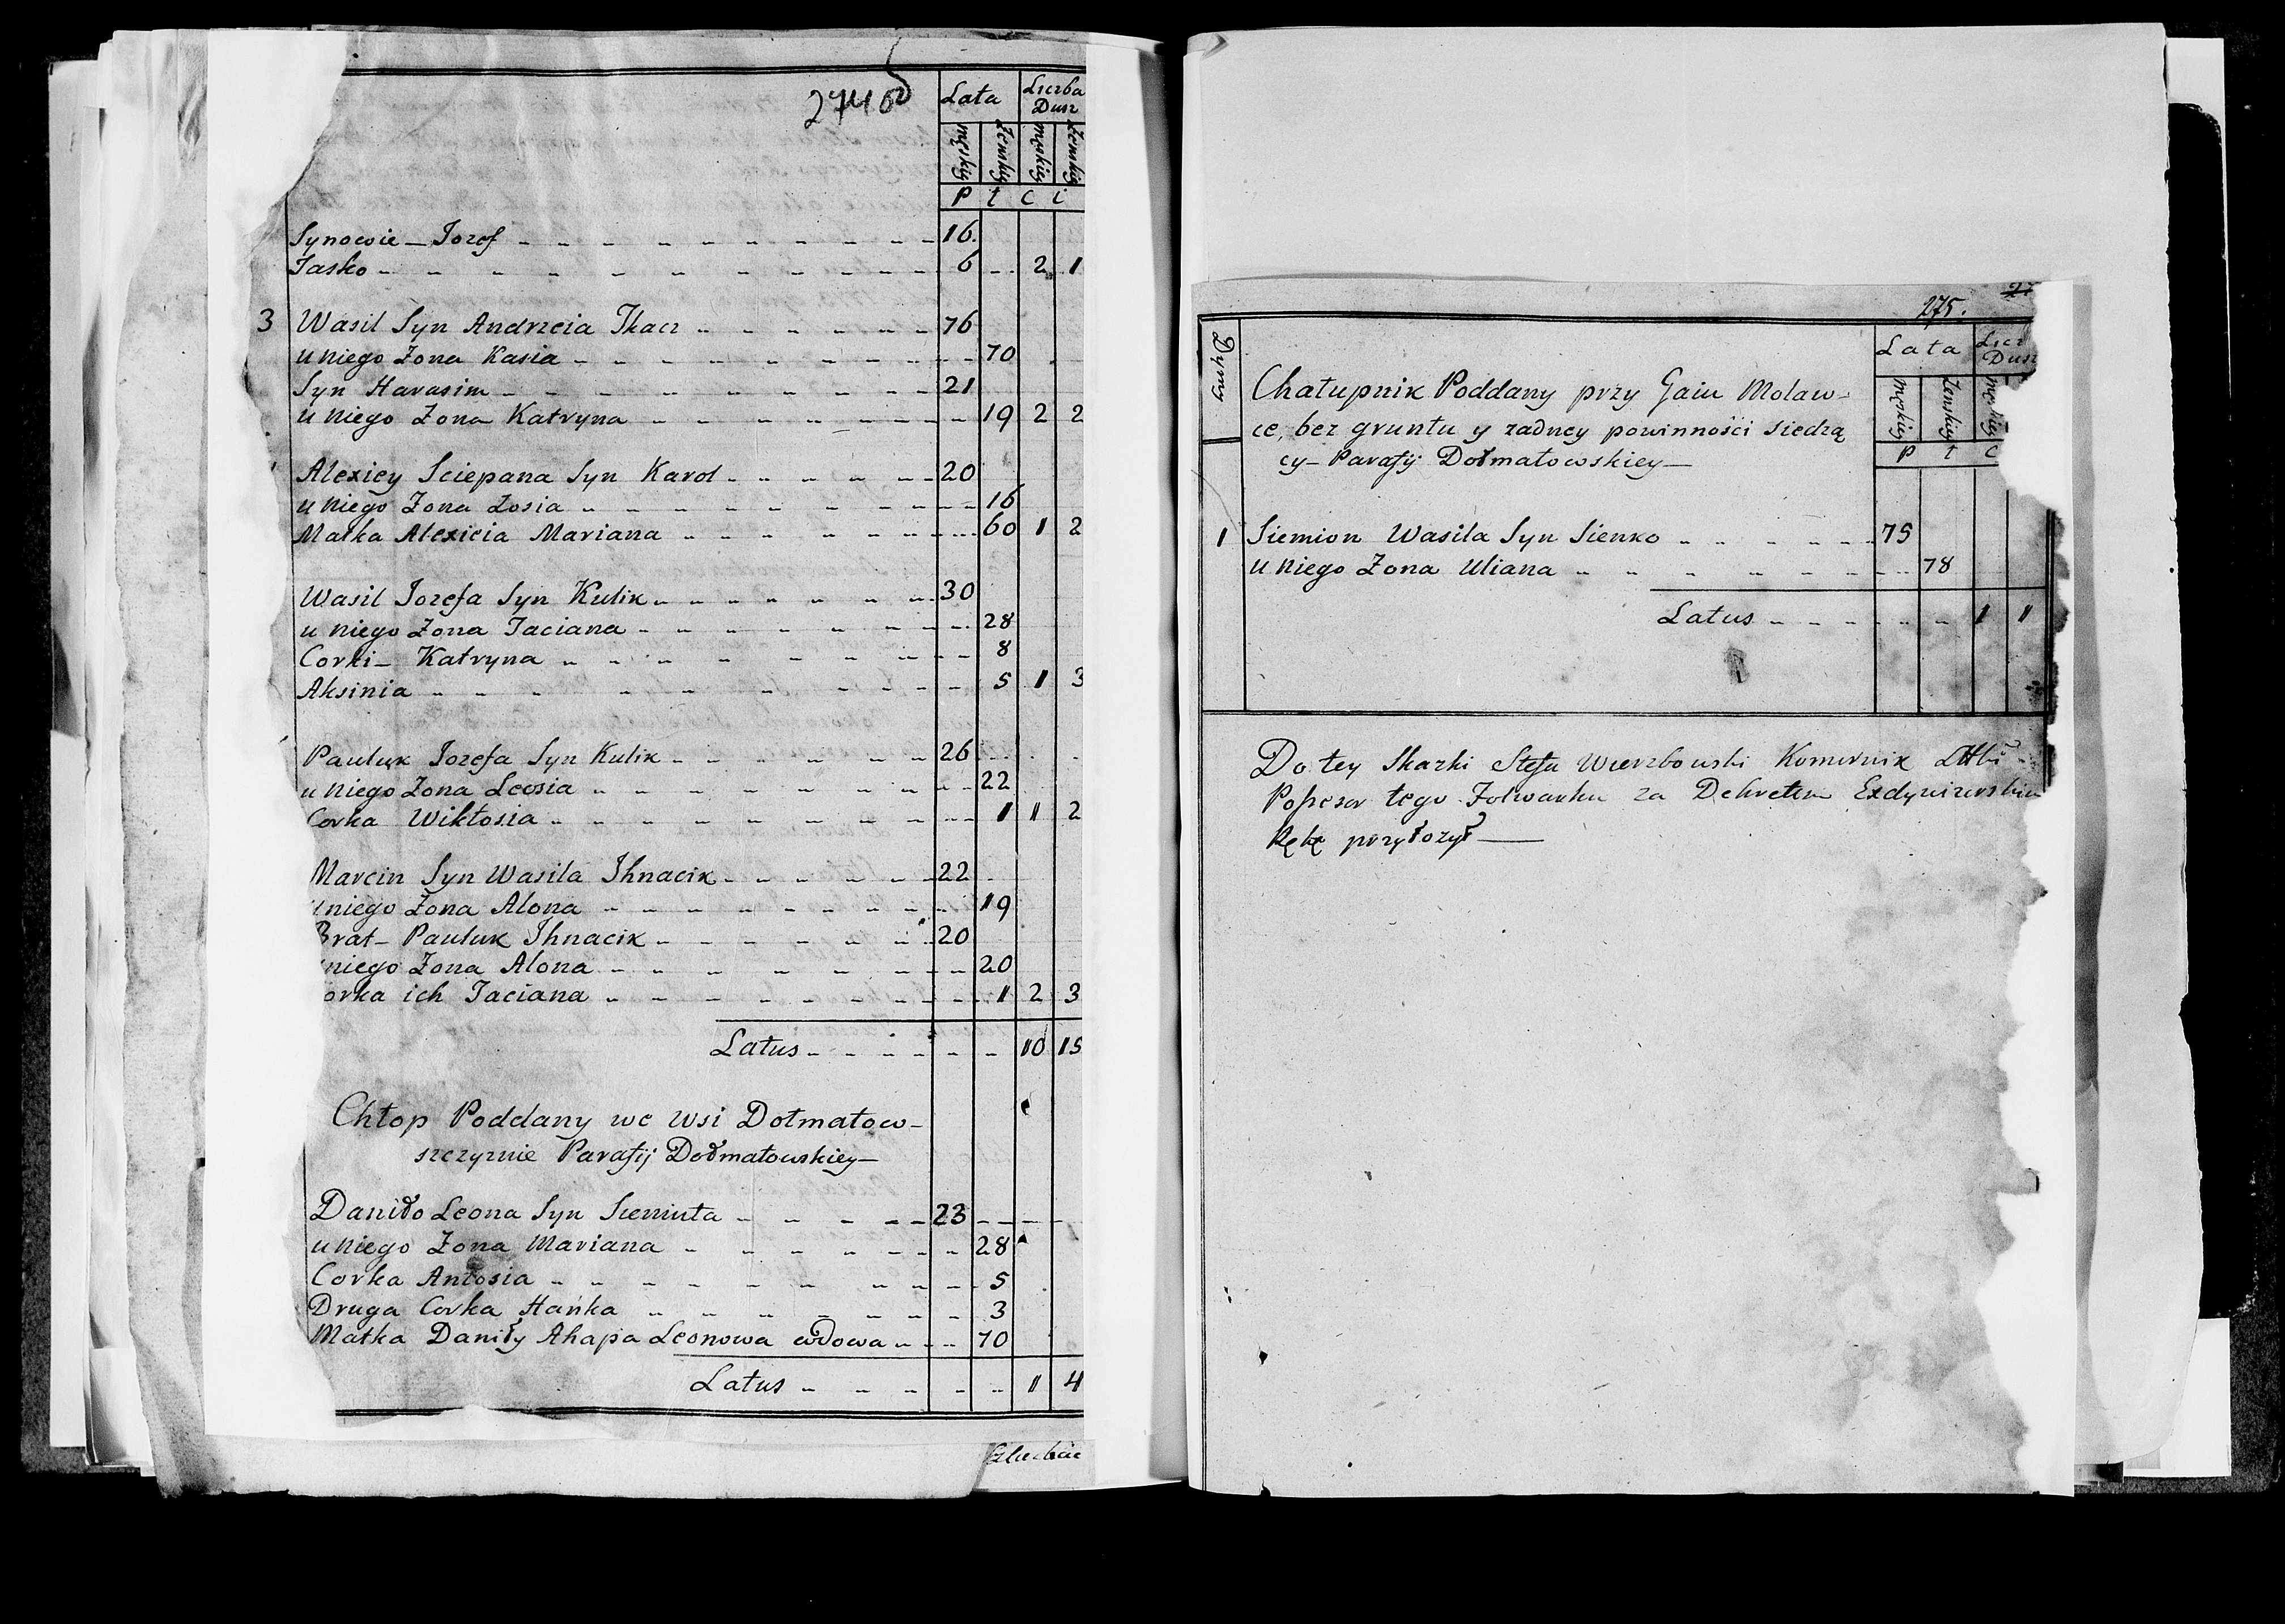 274 об
Lata Liczba Dusz
męskiey Żenskiey męskiey Żenskiey
P ł c i
Synowie – Jozef 16.
Jasko 6 2 1
3 Wasil Syn Andrzeia Tkacz 76
u niego Żona Kasia 70
Syn Harasim 21
u niego Żona Katryna 19 2 2
Alexiey Sciepana Syn Karol 20
u niego Żona Zosia 16
Matka Alexieia Mariana 60 1 2
Wasil Jozefa Syn Kulik 30
u niego Żona Taciana 28
Corki – Katryna 8
Aksinia 5 1 3
Pauluk Jozefa Syn Kulik 26
u niego Żona Leosia 22
Corka Wiktosia 1 1 2
Marcin Syn Wasila Ihnacik 22
u niego Żona Alona 19
Brat – Pauluk Ihnacik 20
niego Żona Alona 20
orka ich Taciana 1 2 3
Latus 10 15
Chłop Poddany we wsi Dołmatow-
szczyznie Parafij Dołmatowskiey –
Daniło Leona Syn Sieminta 23
u niego Żona Mariana 28
Corka Antosia 5
Druga Corka Hańka 3
Matka Daniły Ahapa Leonowa wdowa 70
Latus 1 4
275.
Dymy
Lata Licz Dusz
męskiey Żenskiey męskiey
P ł c
Chałupnik Poddany przy Gaiu Molaw-
ce, bez gruntu y zadney powinności siedzą
cy – Parafij Dołmatowskiey –
1 Siemion Wasila Syn Sienko 75
u niego Żona Uliana 78
Latus 1 1
Do tey Skazki Stefa Wierzbowski Komornik
Possesor tego Folwarku za Dekretem
Rękę przyłożył –